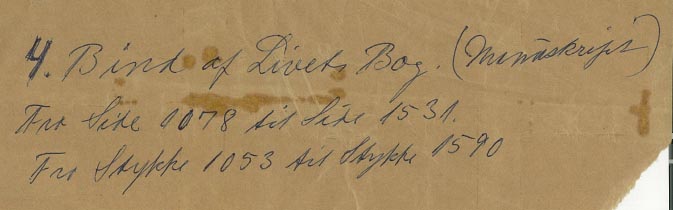 4. Bind af Livets Bog. (Manuskript)
Fra Side 1078 til Side 1531.
Fra Stykke 1053 til Stykke 1590